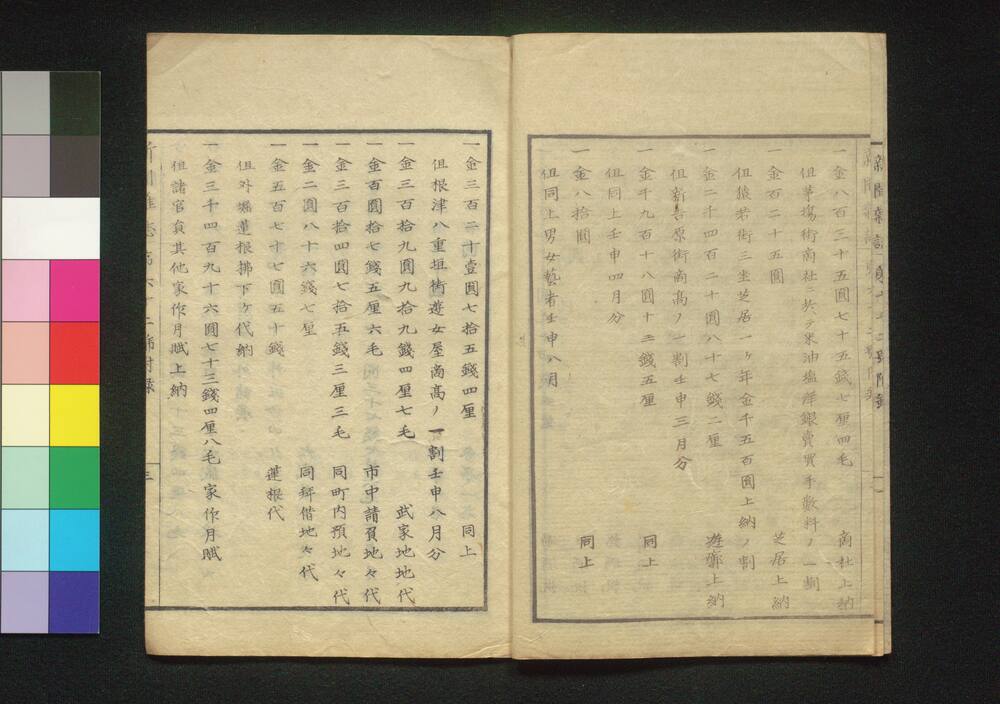 一金八百三十五圓七十五錢七厘四毛 商社上納
但茅塲街商社ニ於テ米油塩洋銀賣買手數料ノ一割
一金百二十五圓 芝居上納
但猿若街三坐芝居一ヶ年金千五百圓上納ノ割
一金二千四百二十圓八十七錢二厘 遊廓上納
但新吉原街商髙ノ一割壬申三月分
一金千九百十八圓十二錢五厘 同上
但同上壬申四月分
一金八拾圓 同上
但同上男女藝者壬申八月
一金三百二十壹圓七拾五錢四厘 同上
但根津八重垣街遊女屋商髙ノ一割壬申八月分
一金三百拾九圓九拾九錢四厘七毛 武家地地代
一金百圓拾七錢五厘六毛 市中請負地々代
一金三百拾四圓七拾五錢三厘三毛 同町内預地々代
一金二圓八十六錢七厘 同拜借地々代
一金五百七十七圓五十錢 蓮根代
但外堀蓮根拂下ケ代納
一金三千四百九十六圓七十三錢四厘八毛 家作月賦
但諸官員其他家作月賦上納